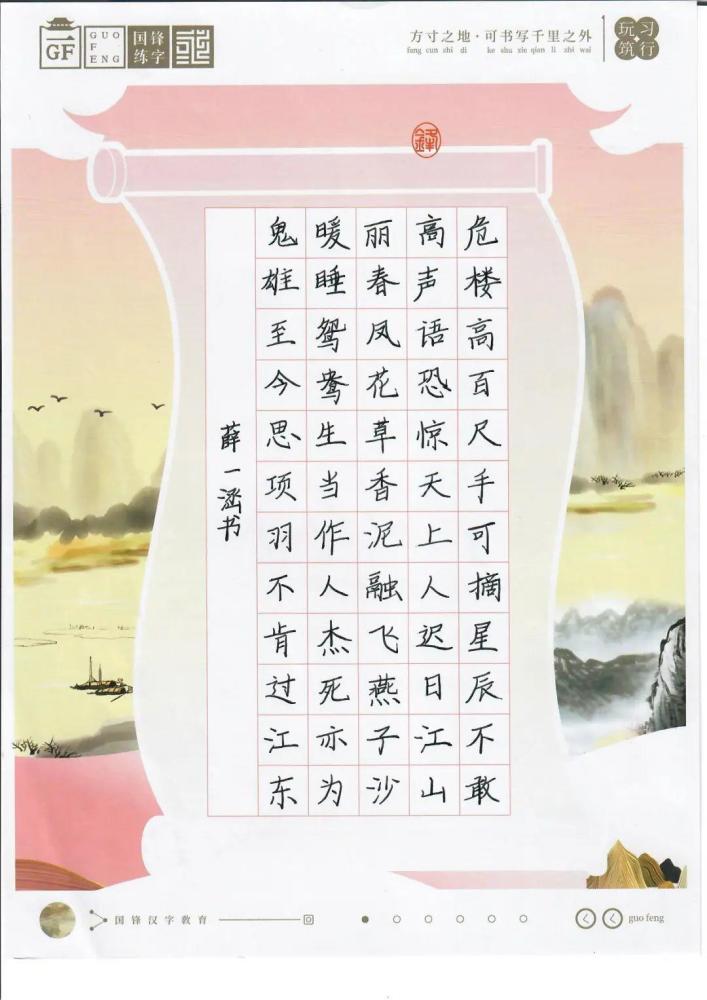 GF
GUO
FENG
国锋
练字
方寸之地·可书写千里之外
fang cun zhi di ke shu xie qian li zhi wai
玩习
筑行
鋒
危楼高百尺手可摘星辰不敢
高声语恐惊天上人迟日江山
丽春风花草香泥融飞燕子沙
暖睡鸳鸯生当作人杰死亦为
鬼雄至今思项羽不肯过江东
薛一涵书
国锋汉字教育
guo feng